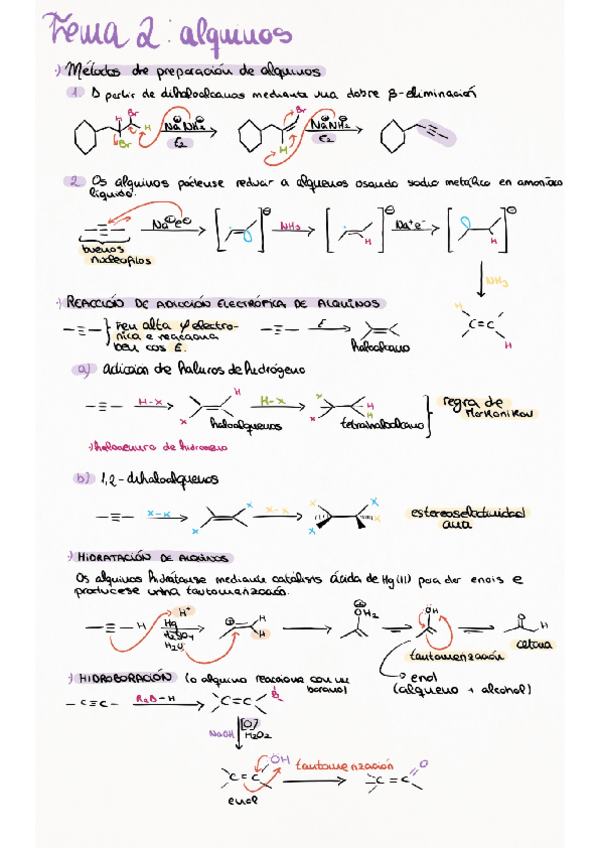 Tema 2: alquinos
·) Métodos de preparación de alquinos
1 A partir de dihaloalcanos mediante una dobre β-eliminación
Br
H
Br
Na⊕NH₂⊖
E₂
Br
H
Na⊕NH₂⊖
E₂
2. Os alquinos pódense reducir a alquenos usando sodio metálico en amoníaco
líquido.
Na⊕e⊖
⊖
NH₃
⊖
H
Na⁺e⁻
⊖
H
buenos
nucleófilos
NH₃
·) REACCIÓN DE ADICCIÓN ELECTRÓFICA DE ALQUINOS
H
C=C
H
Ten alta φ electro-
nica e reacciona
ben cos E.
E
haloalcano
a) adición de haluros de hidrógeno
H-X
H
X
haloalquenos
H-X
X
X
H
H
tetrahaloalcano
regra de
Markonikov
b) 1,2-dihaloalquenos
X-X
X
X
X-X
X
X
X
X
estereoselectividad
anti
·) HIDRATACIÓN DE ALQUINOS
Os alquinos hidrátanse mediante catálisis ácida de Hg(II) para dar enois e
producese unha tautomerización.
H
H⁺
Hg
H₂SO₄
H₂O
⊕
H
H
⊕
OH₂
OH
O
H
cetona
tautomerización
enol
(alqueno + alcohol)
·) HIDROBORACIÓN (o alquino reacciona con un
borano)
-C≡C-
R₂B-H
C=C
B
NaOH
[O]
H₂O₂
C=C
OH
enol
tautomerización
C=C
O